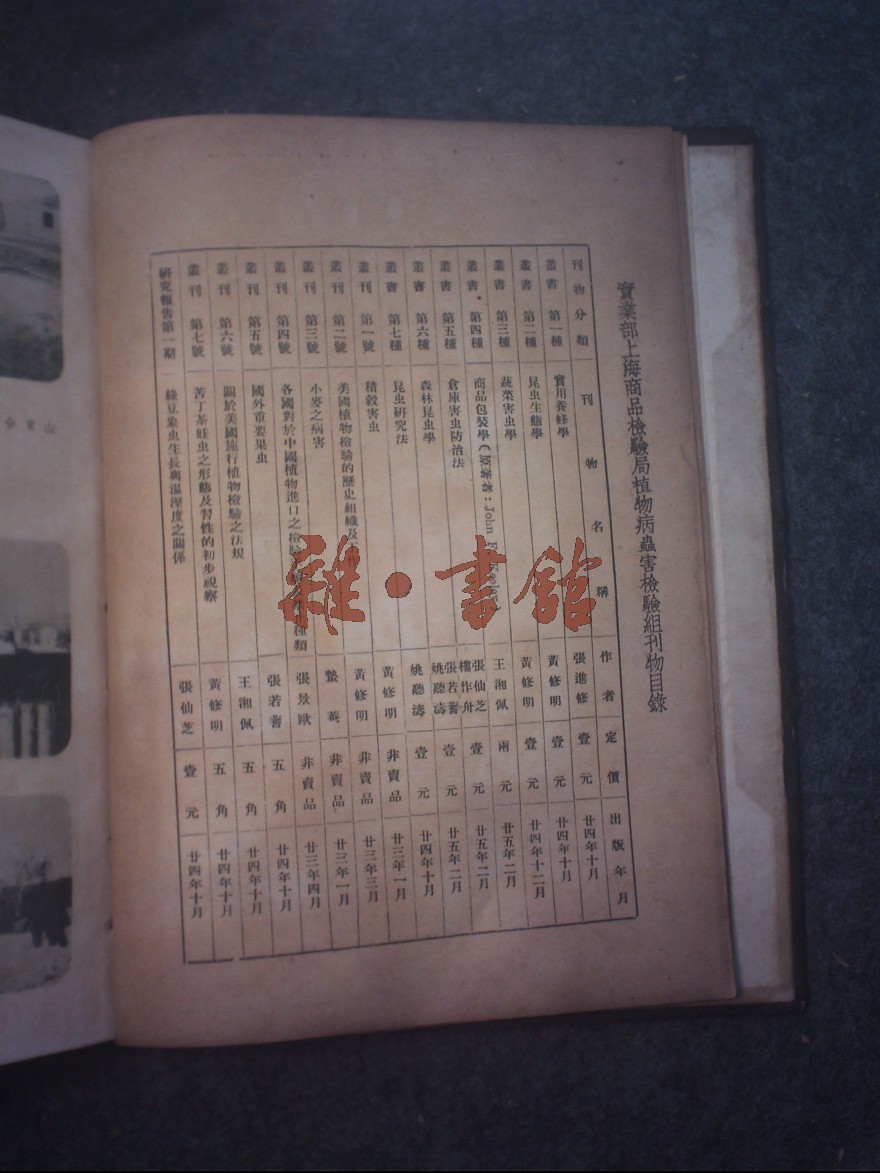 實業部上海商品檢驗局植物病蟲害檢驗組刊物目錄
刊物分類 刊物名稱 作者 定價 出版年月
叢書第一種 實用養蜂學 張進修 壹元 廿四年十月
叢書第二種 昆虫生態學 黃修明 壹元 廿四年十月
叢書第三種 蔬菜害虫學 黃修明 壹元 廿四年十二月
叢書第四種 商品包裝學(原著者：John 王湘佩 兩元 廿五年二月
叢書第五種 倉庫害虫防治法 張仙芝 樓作舟 壹元 廿五年二月
叢書第六種 森林昆虫學 張若蓍 姚聽濤 壹元 廿五年二月
叢書第七種 昆虫研究法 姚聽濤 壹元 廿四年十月
叢刊第一號 積穀害虫 黃修明 非賣品 廿三年一月
叢刊第二號 美國植物檢驗的歷史組織及工作 黃修明 非賣品 廿三年三月
叢刊第三號 小麥之病害 蟄菴 非賣品 廿三年一月
叢刊第四號 各國對於中國植物進口之檢驗 種類 張景歐 非賣品 廿三年四月
叢刊第五號 國外重要果虫 張若蓍 五角 廿四年十月
叢刊第六號 關於美國施行植物檢驗之法規 王湘佩 五角 廿四年十月
叢刊第七號 苦丁茶蛀虫之形態及習性的初步視察 黃修明 五角 廿四年十月
研究報告第一期 綠豆象虫生長與温溼度之關係 張仙芝 壹元 廿四年十月
雜·書館